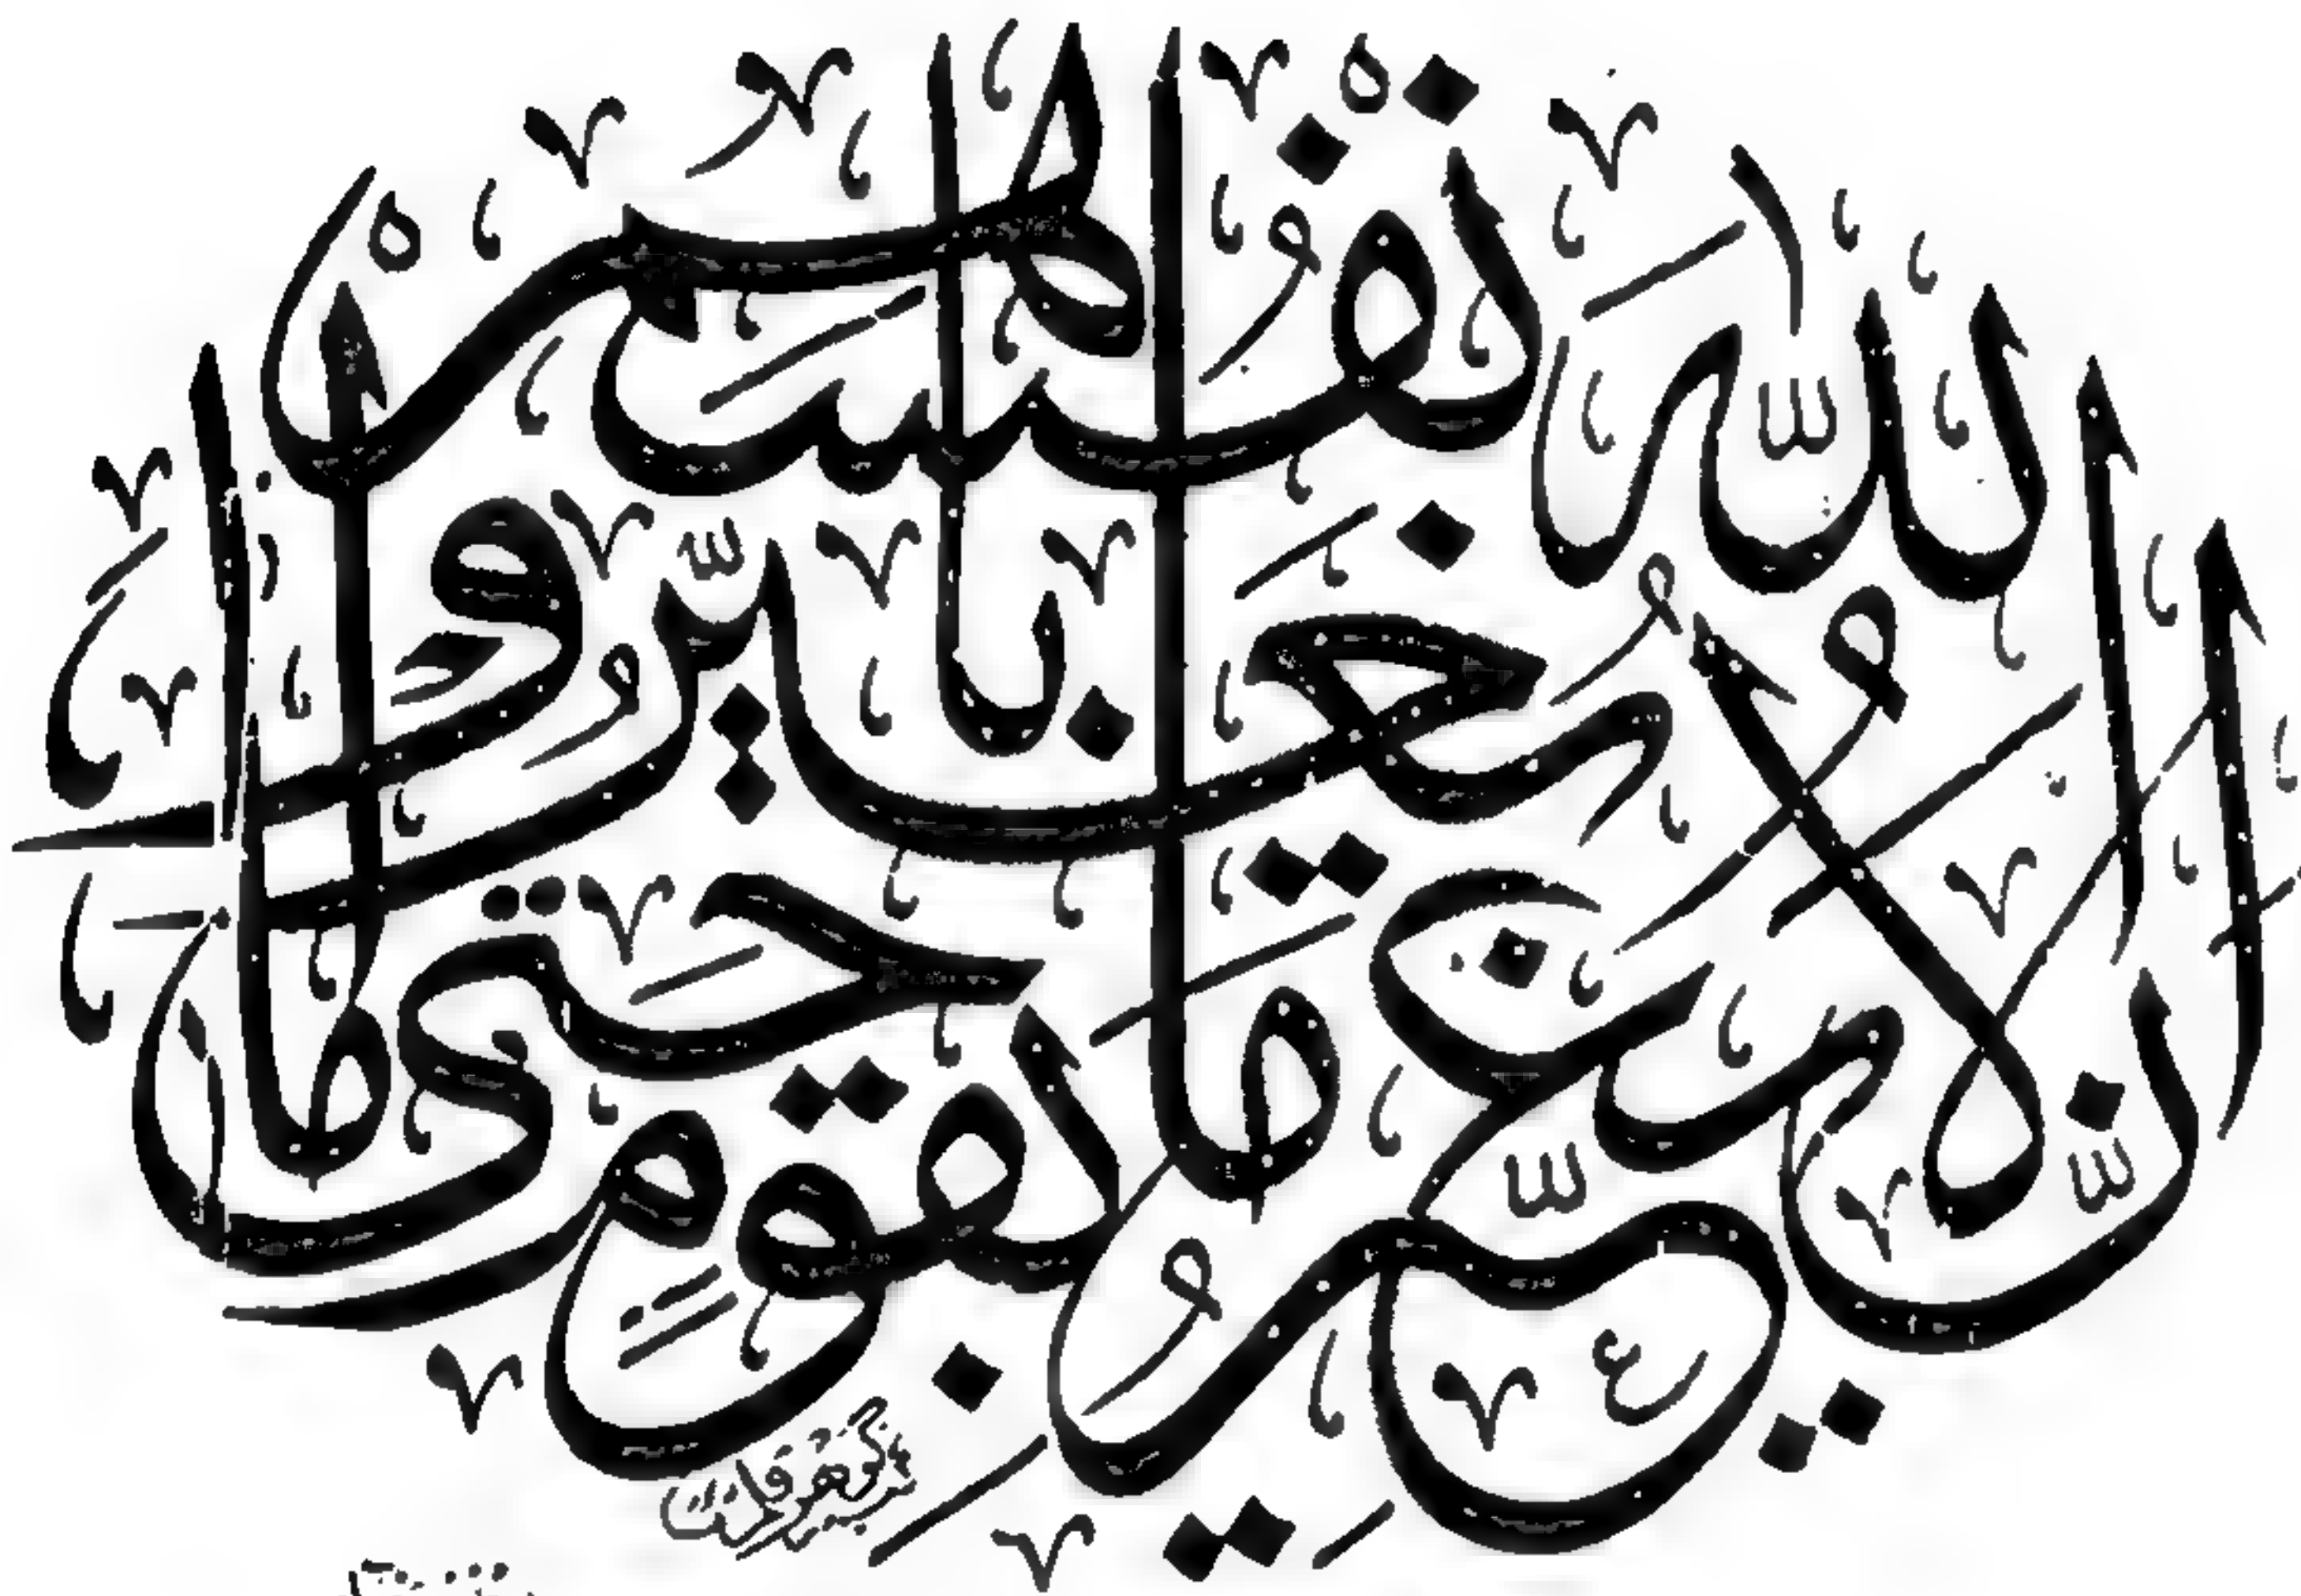 اِنَّ اللهَ لَا يُغَيِّرُ مَا بِقَوْمٍ حَتّٰى يُغَيِّرُوا مَا بِاَنْفُسِهِمْ